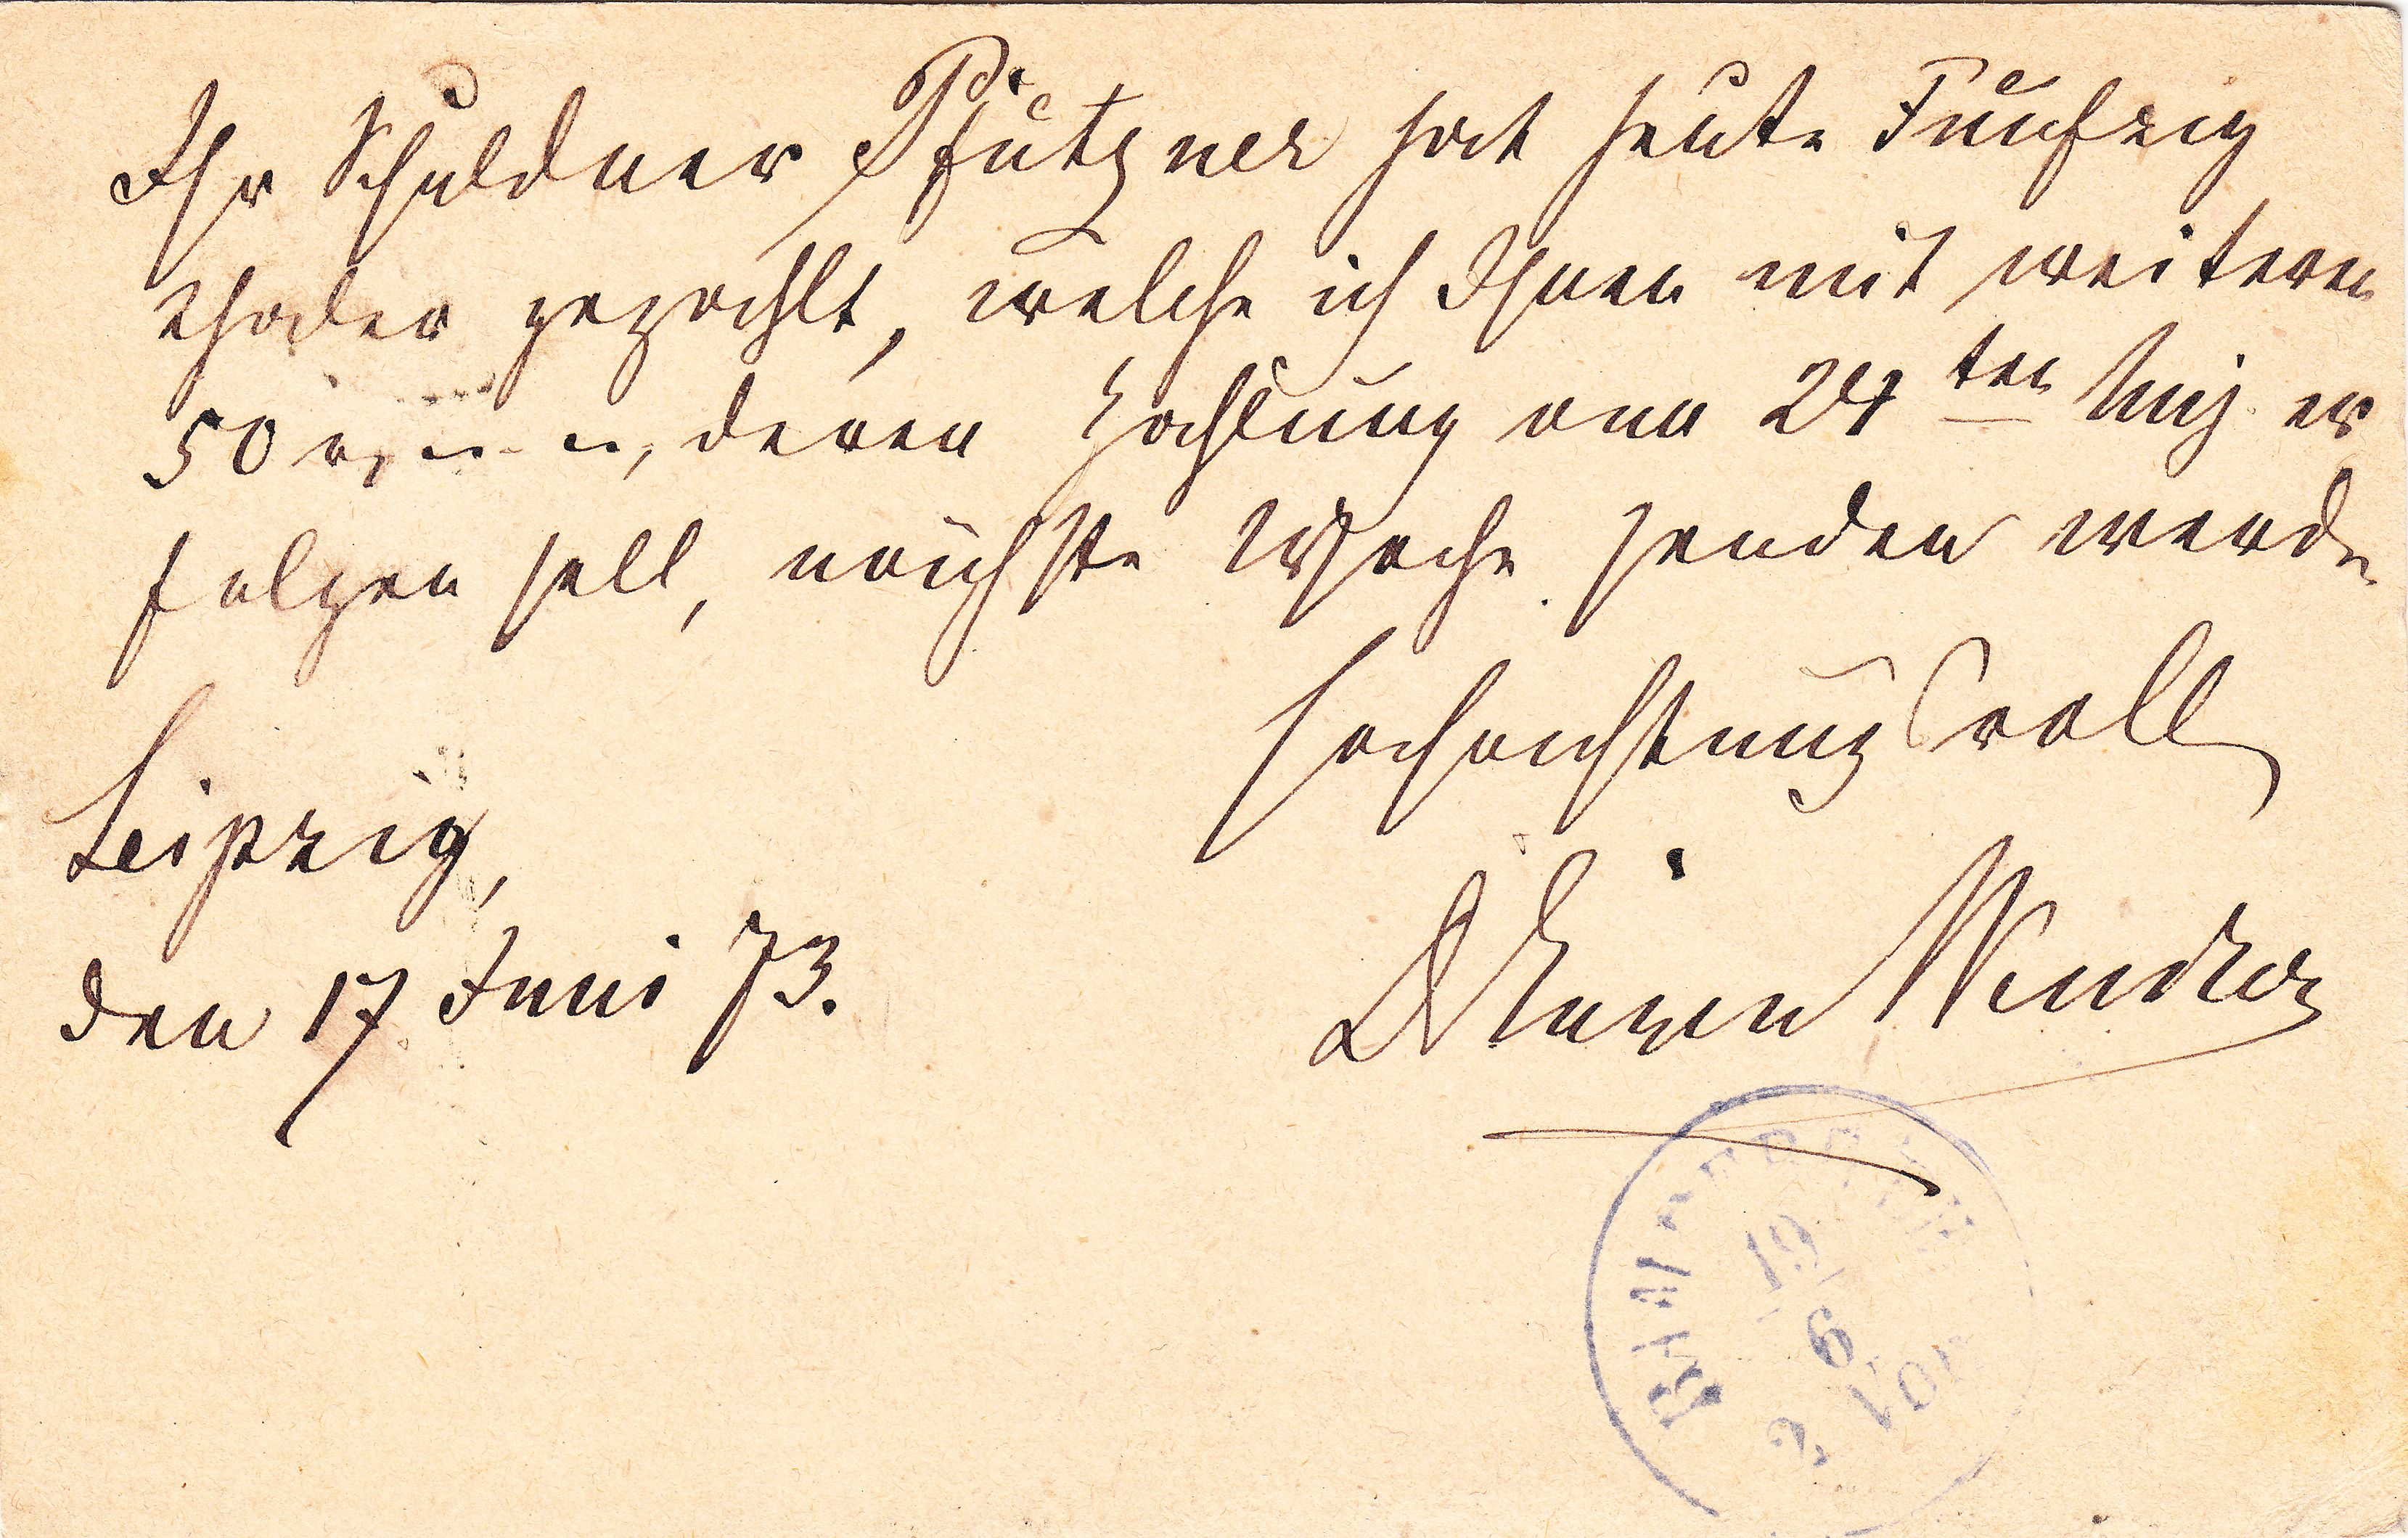 Ihr Schuldner Pfützner hat heute Fünfzig
Thaler gezahlt, welche ich Ihnen mit weiteren
50 deren Zahlung am 24ten er
folgen soll, nächste Woche senden werde
Hochachtungsvoll
Leipzig,
den 17 Juni 73.
19
6
2 VOR